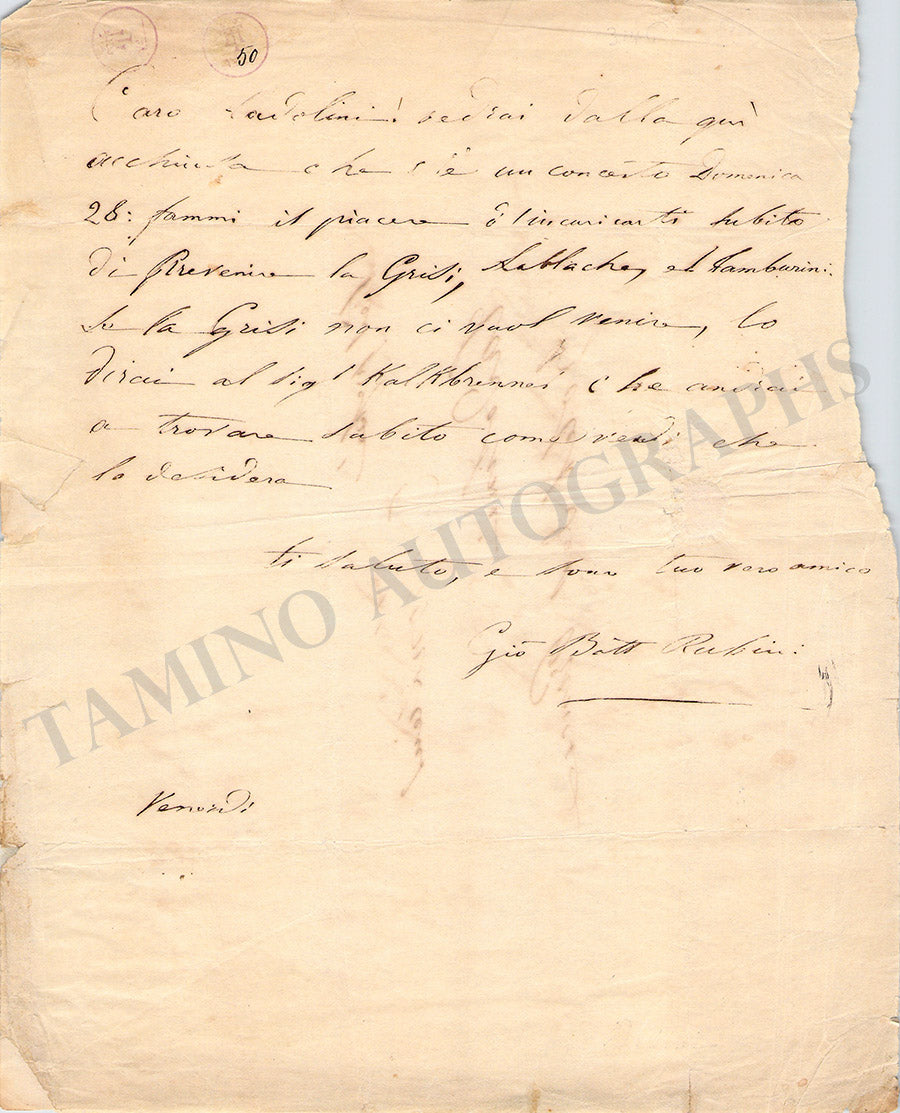 50
Caro Tadolini! vedrai dalla qui
acchiusa che c'è un concerto Domenica
28: fammi il piacere d'incaricarti subito
di Prevenire la Grisi, Lablache, et Tamburini:
se la Grisi non ci vuol venire, lo
dirai al Sigr Kalkbrenner che
a trovare subito come vedi che
lo desidera
ti saluto, e sono tuo vero amico
Gio Batt Rubini
Venerdi
TAMINO AUTOGRAPHS